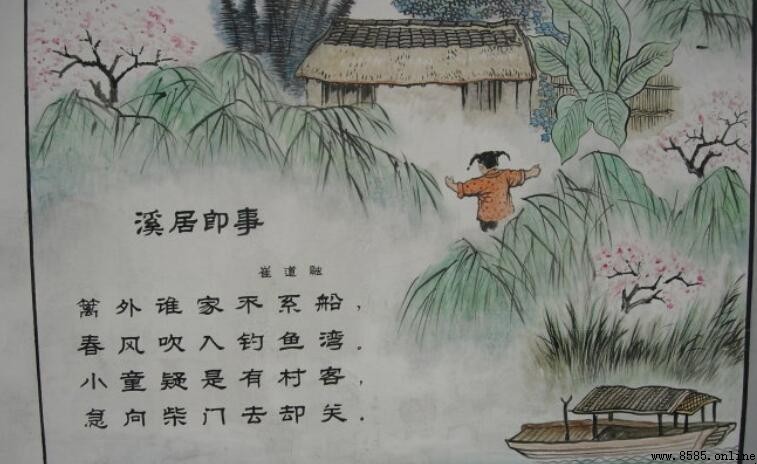 溪居即事
崔道融
篱外谁家不系船，
春风吹入钓鱼湾。
小童疑是有村客，
急向柴门去却关。
www.8585.online